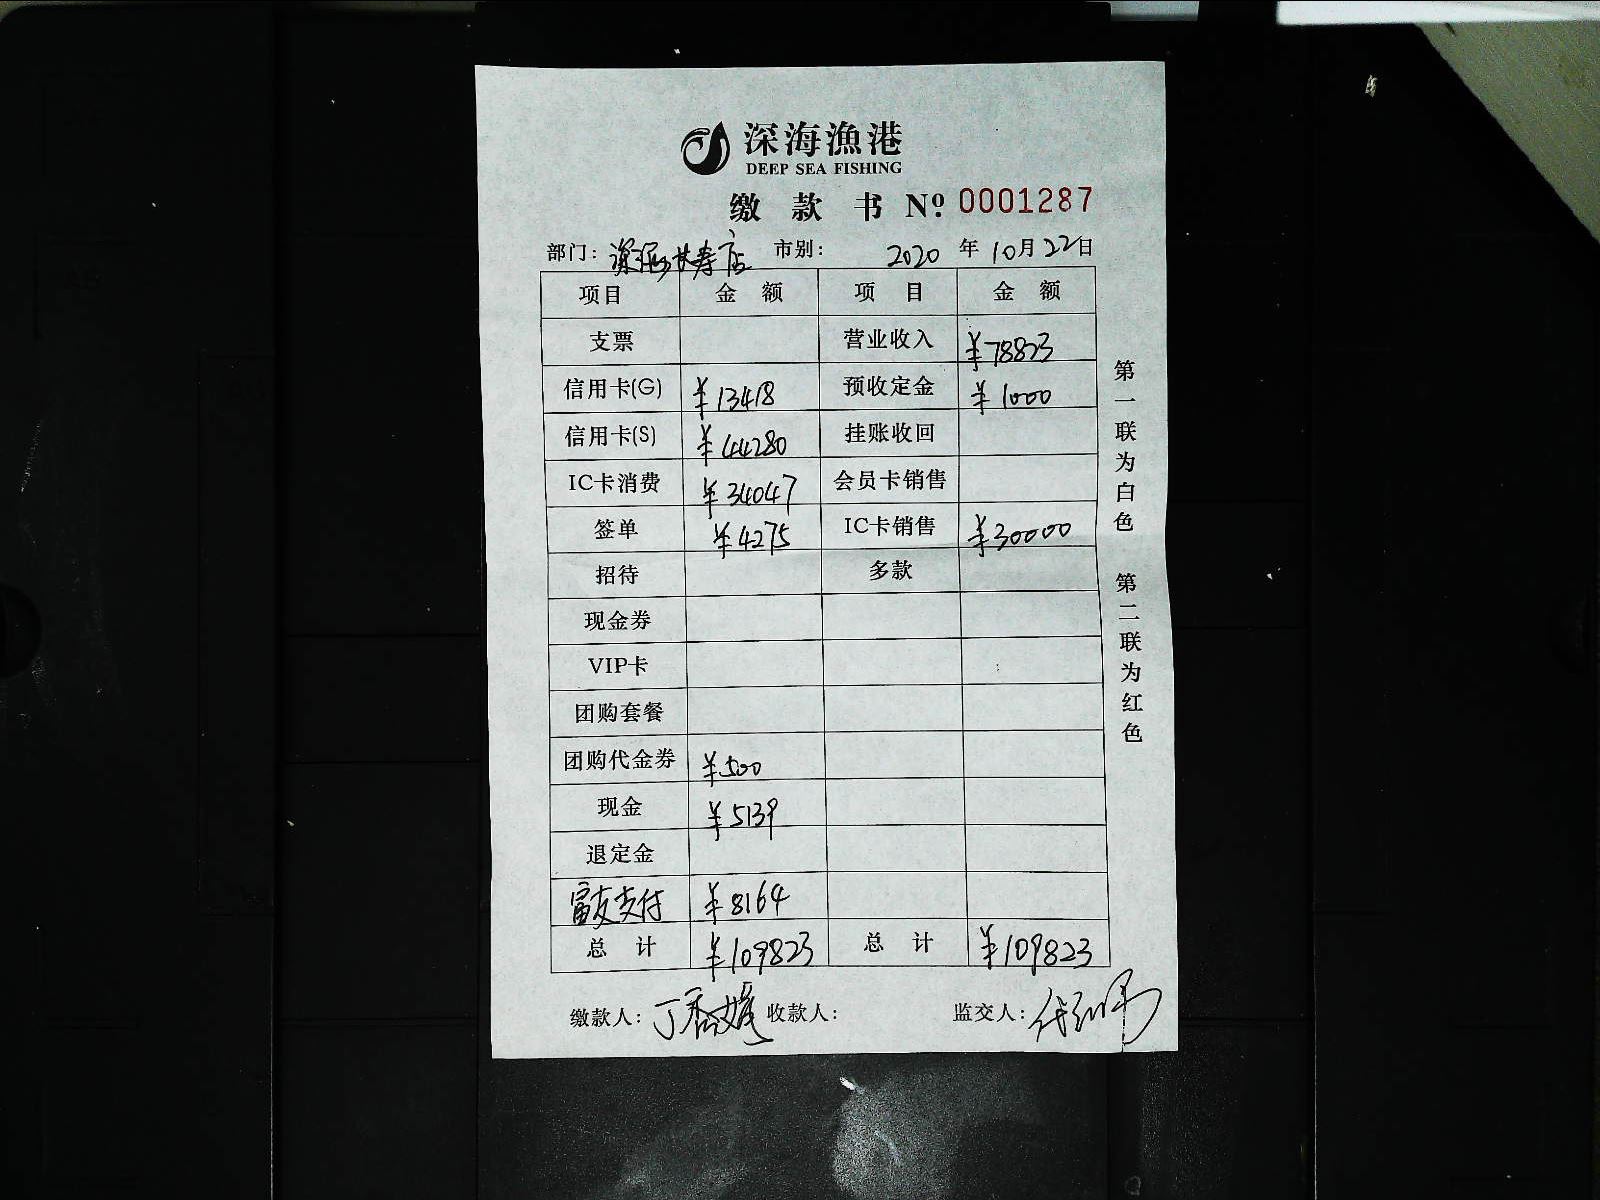 深海漁港
DEEP SEA FISHING
缴款书 Nº: 0001287
部门: 深海甘寿店 市别: 2020 年 10月 22日
项目 金额 项目 金额
支票 营业收入 ¥78823
信用卡(G) ¥13418 预收定金 ¥1000
信用卡(S) ¥44280 挂账收回
IC卡消费 ¥34047 会员卡销售
签单 ¥4275 IC卡销售 ¥30000
招待 多款
现金券
VIP卡
团购套餐
团购代金券 ¥500
现金 ¥5139
退定金
富友支付 ¥8164
总计 ¥109823 总计 ¥109823
缴款人: 丁香媛 收款人: 监交人:
第一联为白色 第二联为红色